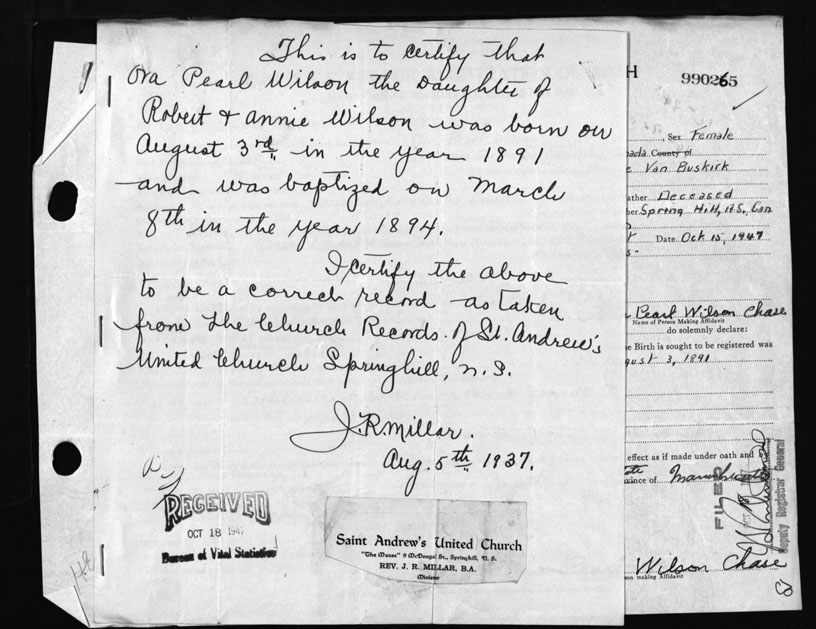 This is to certify that
Ora Pearl Wilson the Daughter of
Robert & Annie Wilson was born on
August 3rd in the year 1891
and was baptized on March
8th in the year 1894.
I certify the above
to be a correct record as taken
from the Church Records of St. Andrew's
United Church Springhill, N.S.
J. R. Millar.
Aug. 5th 1937.
RECEIVED
OCT 18 1947
Bureau of Vital Statistics
Saint Andrew's United Church
"The Manse" 9 McDougal St., Springhill, N. S.
REV. J. R. MILLAR, B.A.
Minister
H
990265
, Sex Female
nada County of
Van Buskirk
ather Deceased
her Spring Hill, N.S., Can
Date Oct 15, 1947
Pearl Wilson Chase
Name of Person Making Affidavit
do solemnly declare:
e Birth is sought to be registered was
gust 3, 1891
effect as if made under oath and
vince of
FILED
Deputy Registrar General
Wilson Chase
son making Affidavit